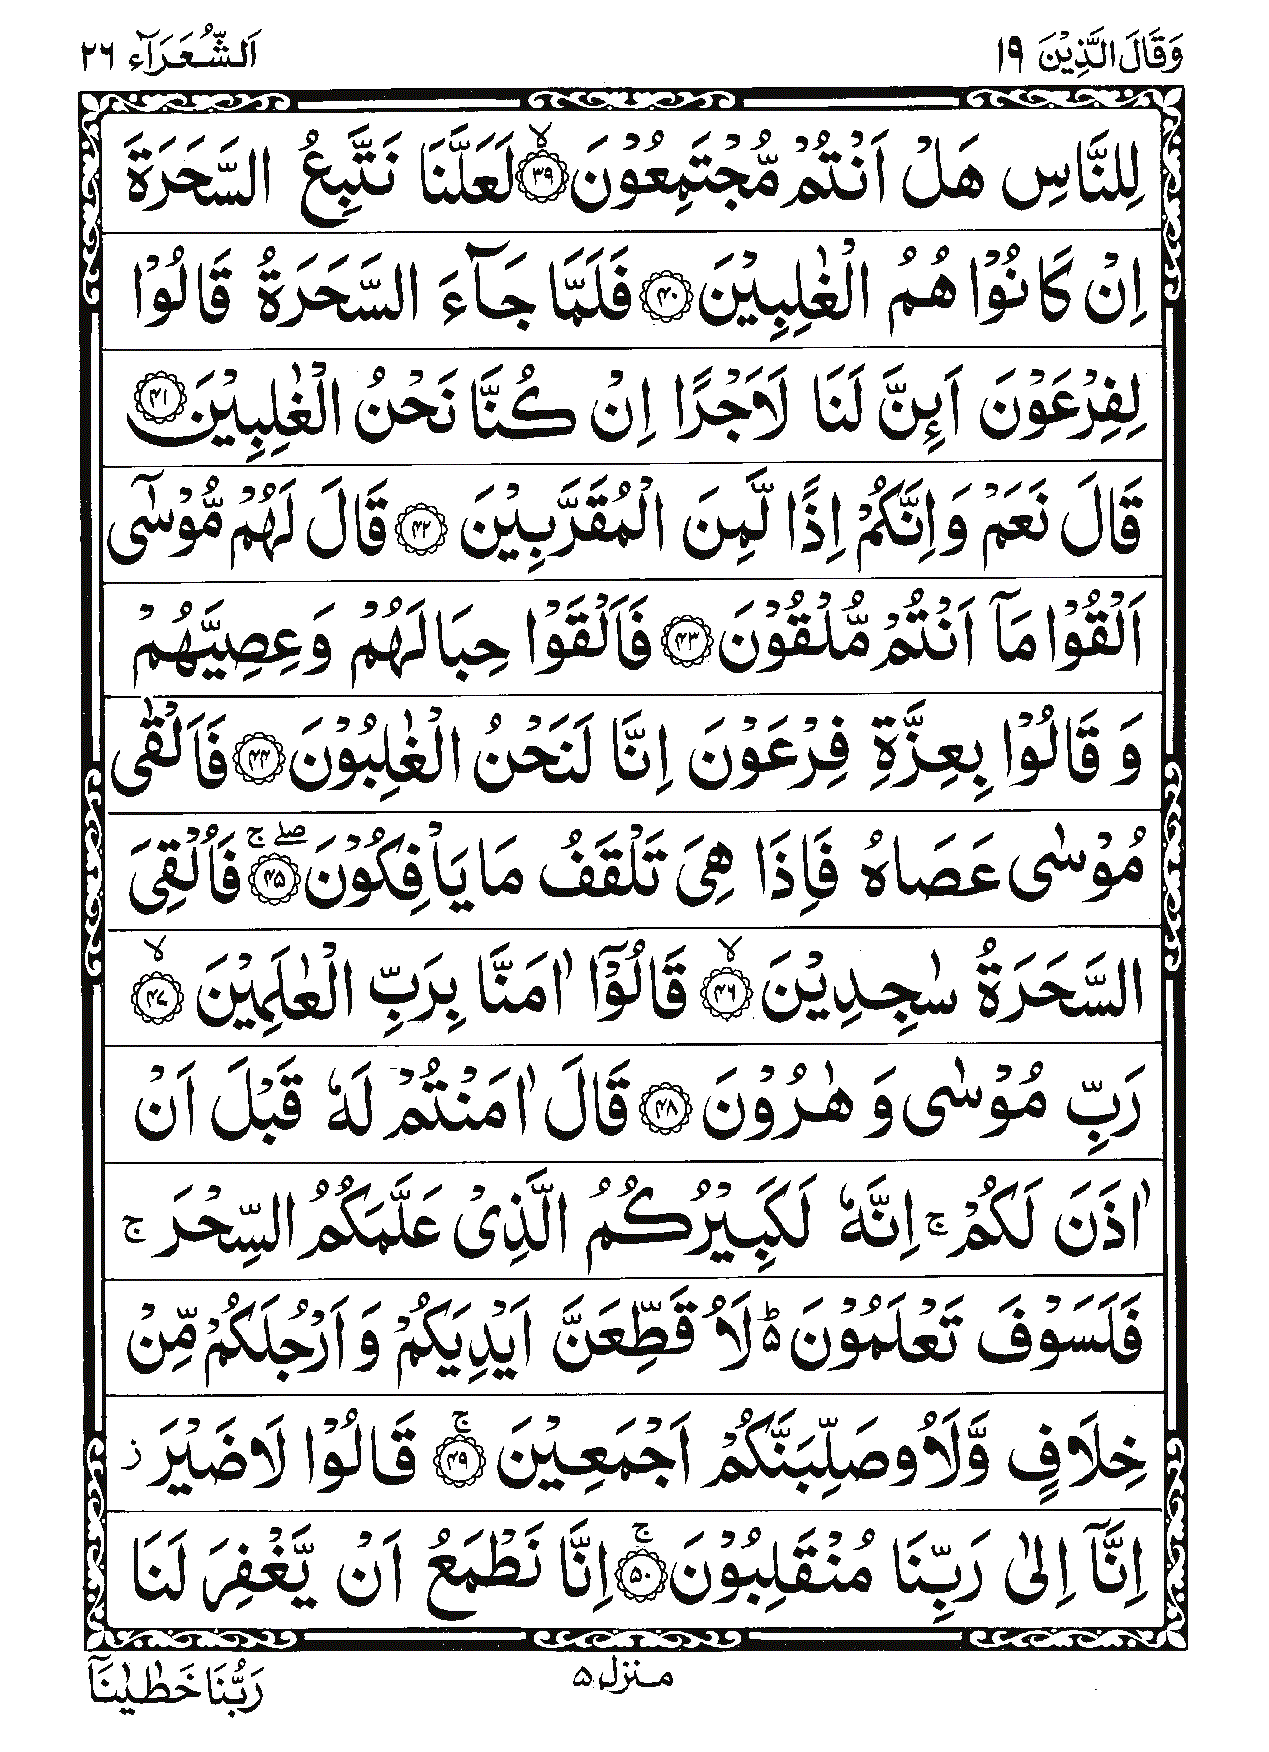 وَقَالَ الَّذِیْنَ ۱۹
اَلشُّعَرَآء ۲۶
لِلنَّاسِ هَلْ اَنْتُمْ مُّجْتَمِعُوْنَ ﴿۳۹﴾ۙ لَعَلَّنَا نَتَّبِعُ السَّحَرَةَ
اِنْ كَانُوْا هُمُ الْغٰلِبِیْنَ ﴿۴۰﴾ فَلَمَّا جَآءَ السَّحَرَةُ قَالُوْا
لِفِرْعَوْنَ اَىِٕنَّ لَنَا لَاَجْرًا اِنْ كُنَّا نَحْنُ الْغٰلِبِیْنَ ﴿۴۱﴾
قَالَ نَعَمْ وَاِنَّكُمْ اِذًا لَّمِنَ الْمُقَرَّبِیْنَ ﴿۴۲﴾ قَالَ لَهُمْ مُّوْسٰۤی
اَلْقُوْا مَاۤ اَنْتُمْ مُّلْقُوْنَ ﴿۴۳﴾ فَاَلْقَوْا حِبَالَهُمْ وَعِصِیَّهُمْ
وَ قَالُوْا بِعِزَّةِ فِرْعَوْنَ اِنَّا لَنَحْنُ الْغٰلِبُوْنَ ﴿۴۴﴾ فَاَلْقٰی
مُوْسٰی عَصَاهُ فَاِذَا هِیَ تَلْقَفُ مَا یَاْفِكُوْنَ ﴿۴۵﴾ۖۚ فَاُلْقِیَ
السَّحَرَةُ سٰجِدِیْنَ ﴿۴۶﴾ۙ قَالُوْۤا اٰمَنَّا بِرَبِّ الْعٰلَمِیْنَ ﴿۴۷﴾ۙ
رَبِّ مُوْسٰی وَ هٰرُوْنَ ﴿۴۸﴾ قَالَ اٰمَنْتُمْ لَهٗ قَبْلَ اَنْ
اٰذَنَ لَكُمْ ۚ اِنَّهٗ لَكَبِیْرُكُمُ الَّذِیْ عَلَّمَكُمُ السِّحْرَ ۚ
فَلَسَوْفَ تَعْلَمُوْنَ ؕ۵ لَاُقَطِّعَنَّ اَیْدِیَكُمْ وَ اَرْجُلَكُمْ مِّنْ
خِلَافٍ وَّلَاُوصَلِّبَنَّكُمْ اَجْمَعِیْنَ ﴿۴۹﴾ۚ قَالُوْا لَا ضَیْرَ ز
اِنَّاۤ اِلٰی رَبِّنَا مُنْقَلِبُوْنَ ﴿۵۰﴾ۚ اِنَّا نَطْمَعُ اَنْ یَّغْفِرَ لَنَا
منزل ۵
رَبُّنَا خَطٰیٰنَاۤ